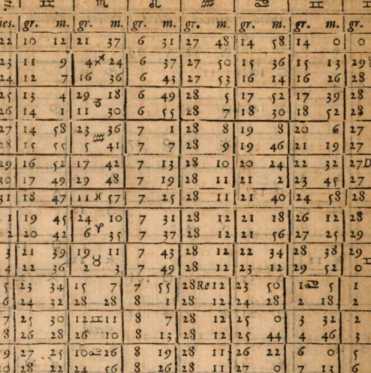 ♊ ♏ ♌ ♒ ♊
ies. gr. m. gr. m. gr. m. gr. m. gr. m. gr. m. gr.
22 10 12 21 37 6 31 27 48 14 58 14 0 0
23 11 9 4 ♐ 24 6 37 27 50 15 36 15 13 29
24 12 7 16 36 6 43 27 53 16 14 16 26 28
25 13 4 29 18 6 49 28 5 17 52 17 39 28
26 14 1 11 30 6 55 28 7 18 30 18 52 28
27 14 58 23 36 7 1 28 8 19 8 20 6 27
28 15 55 41 7 7 28 9 19 46 21 19 27
29 16 52 17 42 7 13 28 10 20 24 22 32 27D
30 17 49 29 48 7 19 28 11 21 2 23 45 27
31 18 47 11 ♓ 57 7 25 28 11 21 40 24 58 28
1 19 45 24 10 7 31 28 12 21 18 26 12 28
2 20 42 6 35 7 37 28 12 21 56 27 25 29
3 21 39 19 11 7 43 28 12 22 34 28 38 29
4 22 36 2 3 7 49 28 12 23 12 29 52 0
5 23 34 15 7 7 55 28Re12 23 50 5 1
6 24 32 28 28 8 1 28 12 24 28 2 18 2
7 25 30 12 ♊ 11 8 7 28 12 25 0 3 32 2
8 26 28 26 10 8 13 28 12 25 44 4 46 3
9 27 25 10 26 8 19 28 11 26 22 6 0 5
10 28 22 24 56 8 26 28 11 27 0 7 13 6